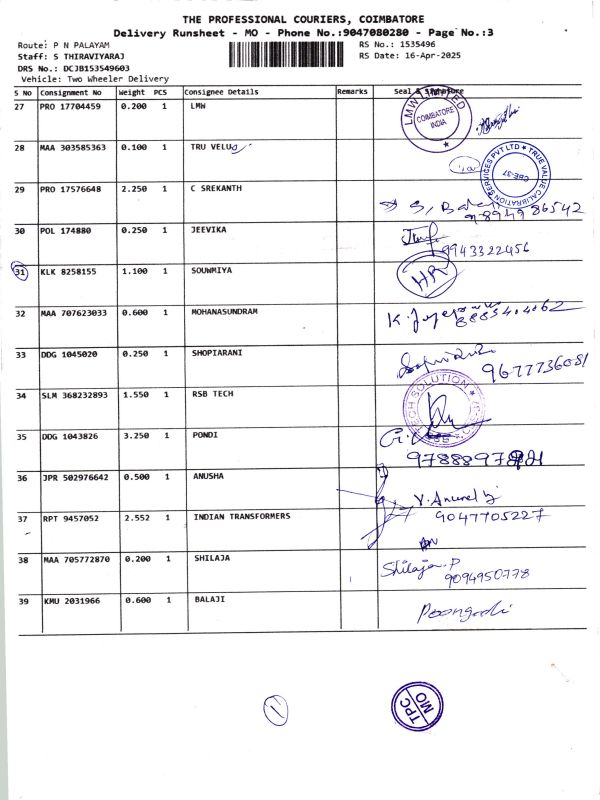 THE PROFESSIONAL COURIERS, COIMBATORE
Delivery Runsheet - MO - Phone No.:9047080280 - Page No.:3
Route: P N PALAYAM
RS No.: 1535496
Staff: S THIRAVIYARAJ
RS Date: 16-Apr-2025
DRS No.: DCJB153549603
Vehicle: Two Wheeler Delivery
S No Consignment No Weight PCS Consignee Details Remarks Seal & Signature
27 PRO 17704459 0.200 1 LMW
LMW LIMITED
COIMBATORE
INDIA
28 MAA 303585363 0.100 1 TRU VELUE
TRUE VALUE CALIBRATION SERVICES PVT LTD
CBE-37
29 PRO 17576648 2.250 1 C SREKANTH
30 POL 174880 0.250 1 JEEVIKA
9943322456
31 KLK 8258155 1.100 1 SOUWMIYA
HR
32 MAA 707623033 0.600 1 MOHANASUNDRAM
33 DDG 1045020 0.250 1 SHOPIARANI
9677736081
34 SLM 368232893 1.550 1 RSB TECH
TECH SOLUTION
35 DDG 1043826 3.250 1 PONDI
36 JPR 502976642 0.500 1 ANUSHA
37 RPT 9457052 2.552 1 INDIAN TRANSFORMERS
9047705227
38 MAA 705772870 0.200 1 SHILAJA
Shilaja.P
9094950778
39 KMU 2031966 0.600 1 BALAJI
1
TPC
MO